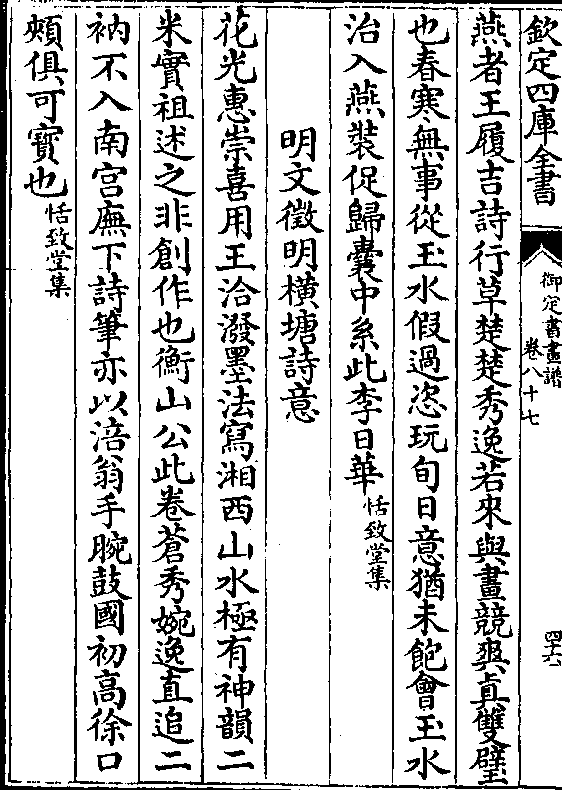 欽定四庫全書
御定書畫譜
卷八十七
四十六
燕者王履吉詩行草楚楚秀逸若來與畫競爽真雙璧
也春寒無事從玉水假過恣玩旬日意猶未飽會玉水
治入燕裝促歸囊中系此李日華恬致堂集
明文徵明橫塘詩意
花光惠崇喜用王洽潑墨法寫湘西山水極有神韻二
米實祖述之非創作也衡山公此卷蒼秀婉逸直追二
衲不入南宫廡下詩筆亦以涪翁手腕鼓國初高徐口
頰俱可寳也恬致堂集